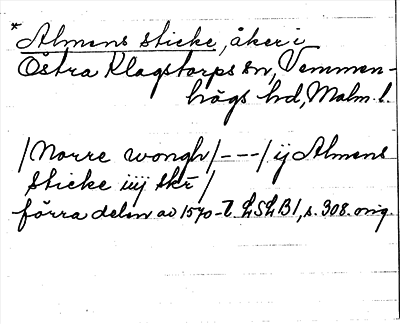 * Almens sticke, åker i
Östra Klagstorps sn, Vemmen-
högs hd, Malm. l.
/Norre wongh/---/ij Almens
sticke iiij skr/
förra delen av 1570-t. LSLB1, s. 308. orig.